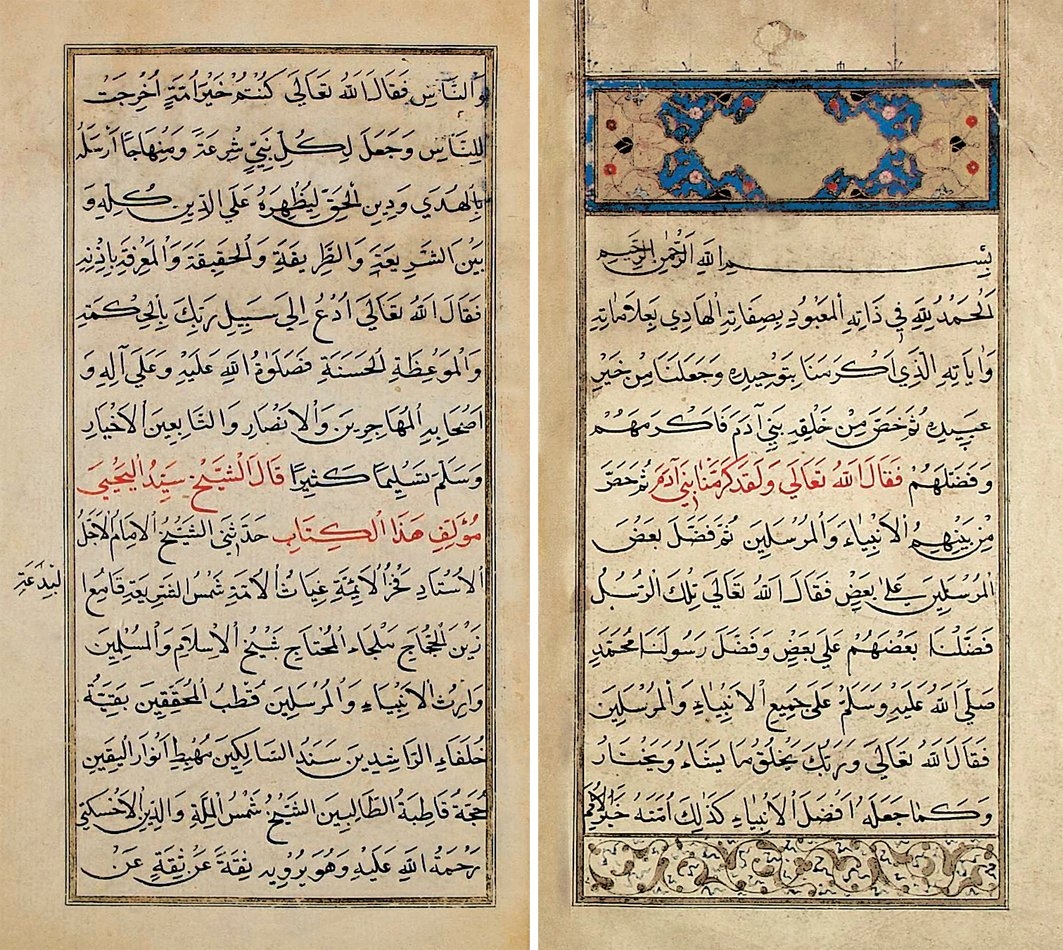 بسم الله الرحمن الرحيم
الحمد لله في ذاته المعبود بصفاته الهادي بعلاماته
واياته الذي اكرمنا بتوحيده وجعلنا من خير
عبيده ثم خص من خلقه بني آدم فاكرمهم
وفضلهم فقال الله تعالي ولقد كرمنا بني آدم ثم خص
من بينهم الانبياء والمرسلين ثم فضل بعض
المرسلين علي بعض فقال الله تعالي تلك الرسل
فضلنا بعضهم علي بعض وفضل رسولنا محمد
صلي الله عليه وسلم علي جميع الانبياء والمرسلين
فقال الله تعالي وربك يخلق ما يشاء ويختار
وكما جعله افضل الانبياء كذلك امته خير الامم
والناس فقال الله تعالي كنتم خير امة اخرجت
للناس وجعل لكل نبي شرعة ومنهاجا ارسله
بالهدي ودين الحق ليظهره علي الدين كله و
بين الشريعة والطريقة والحقيقة والمعرفة باذنه
فقال الله تعالي ادع الي سبيل ربك بالحكمة
والموعظة الحسنة فصلوة الله عليه وعلي آله و
اصحابه المهاجرين والانصار والتابعين الاخيار
وسلم تسليما كثيرا قال الشيخ سيد اليحيي
مؤلف هذا الكتاب حدثني الشيخ الامام الاجل
الاستاد فخر الايمة غياث الامة شمس الشريعة قامع
لبدعة
زين الحجاج ملجاء المحتاج شيخ الاسلام والمسلمين
وارث الانبياء والمرسلين قطب المحققين بقية
خلفاء الراشدين سند السالكين مهبط انوار اليقين
حجة قاطبة الطالبين الشيخ شمس الملة والدين الاخسكتي
رحمة الله عليه وهو يرويه ثقة عن ثقة عن